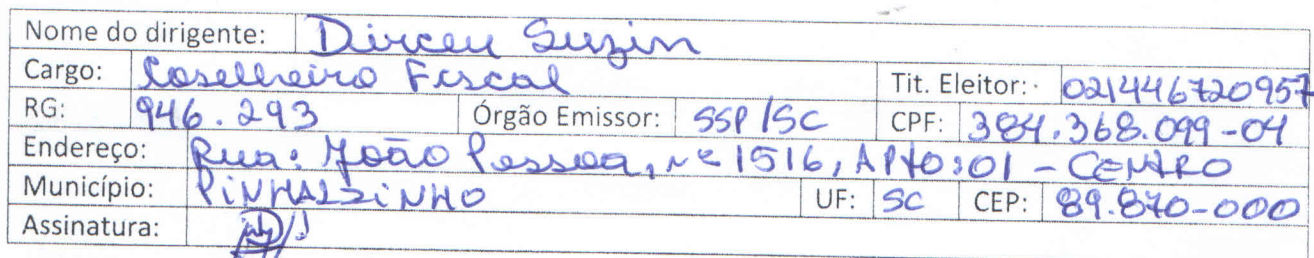 Nome do dirigente: Dirceu Suzin
Cargo: Coselheiro Fiscal Tit. Eleitor: 021446720957
RG: 946.293 Órgão Emissor: SSP/SC CPF: 384.368.099-04
Endereço: Rua: João Pessoa, nº 1516, APTO:01 - CENTRO
Município: PINHALZINHO UF: SC CEP: 89.870-000
Assinatura: